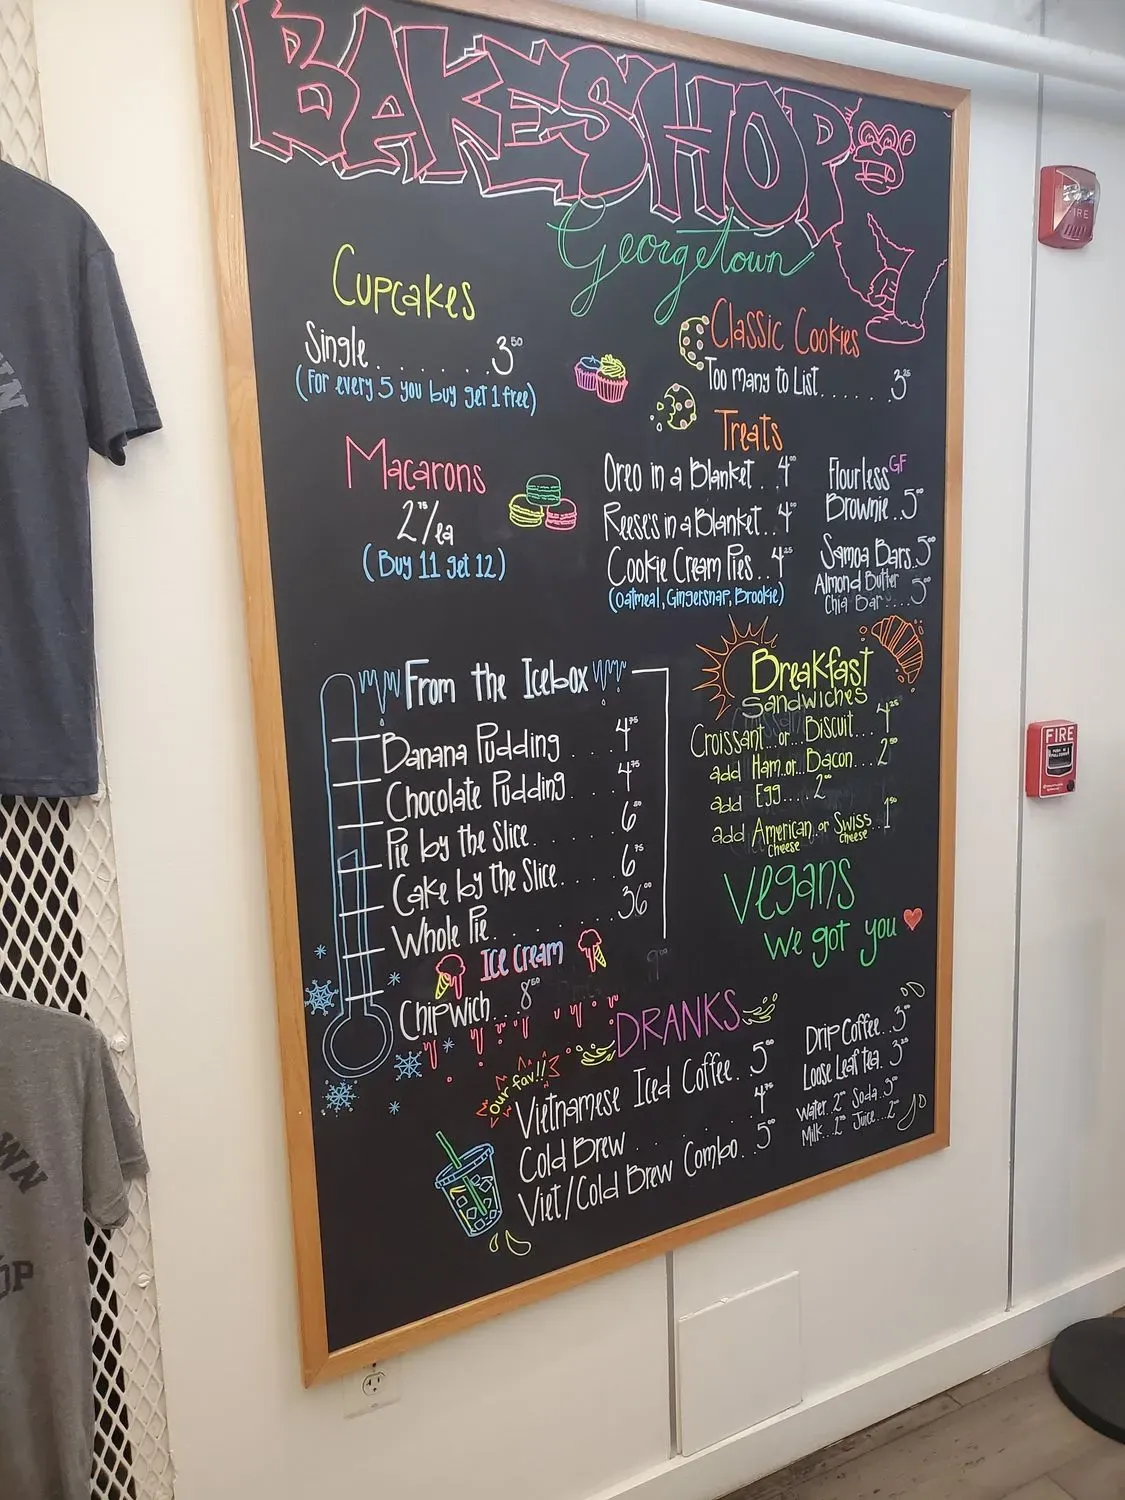 BAKESHOP
Georgetown
Cupcakes
Single.......3.50
(For every 5 you buy get 1 free)
Macarons
2.75/ea
(Buy 11 get 12)
Classic Cookies
Too Many to List......3.25
Treats
Oreo in a Blanket..4.00
Reese's in a Blanket..4.00
Cookie Cream Pies..4.25
(Oatmeal, Gingersnap, Brookie)
Flourless GF
Brownie..5.00
Samoa Bars..5.00
Almond Butter
Chia Bar....5.00
From the Icebox
Banana Pudding....4.75
Chocolate Pudding....4.75
Pie by the Slice.....6.50
Cake by the Slice....6.75
Whole Pie......36.00
Ice Cream
Chipwich...8.50
Breakfast
Sandwiches
Croissant..or..Biscuit...4.25
add Ham..or..Bacon...2.50
add Egg....2.00
add American or Swiss..1.50
Cheese Cheese
Vegans
We got you
DRANKS
our fav!!
Vietnamese Iced Coffee..5.00
Cold Brew.......4.75
Viet/Cold Brew Combo..5.00
Drip Coffee..3.00
Loose Leaf Tea.3.25
Water.2.00 Soda.3.00
Milk...2.75 Juice...2.00
FIRE
FIRE